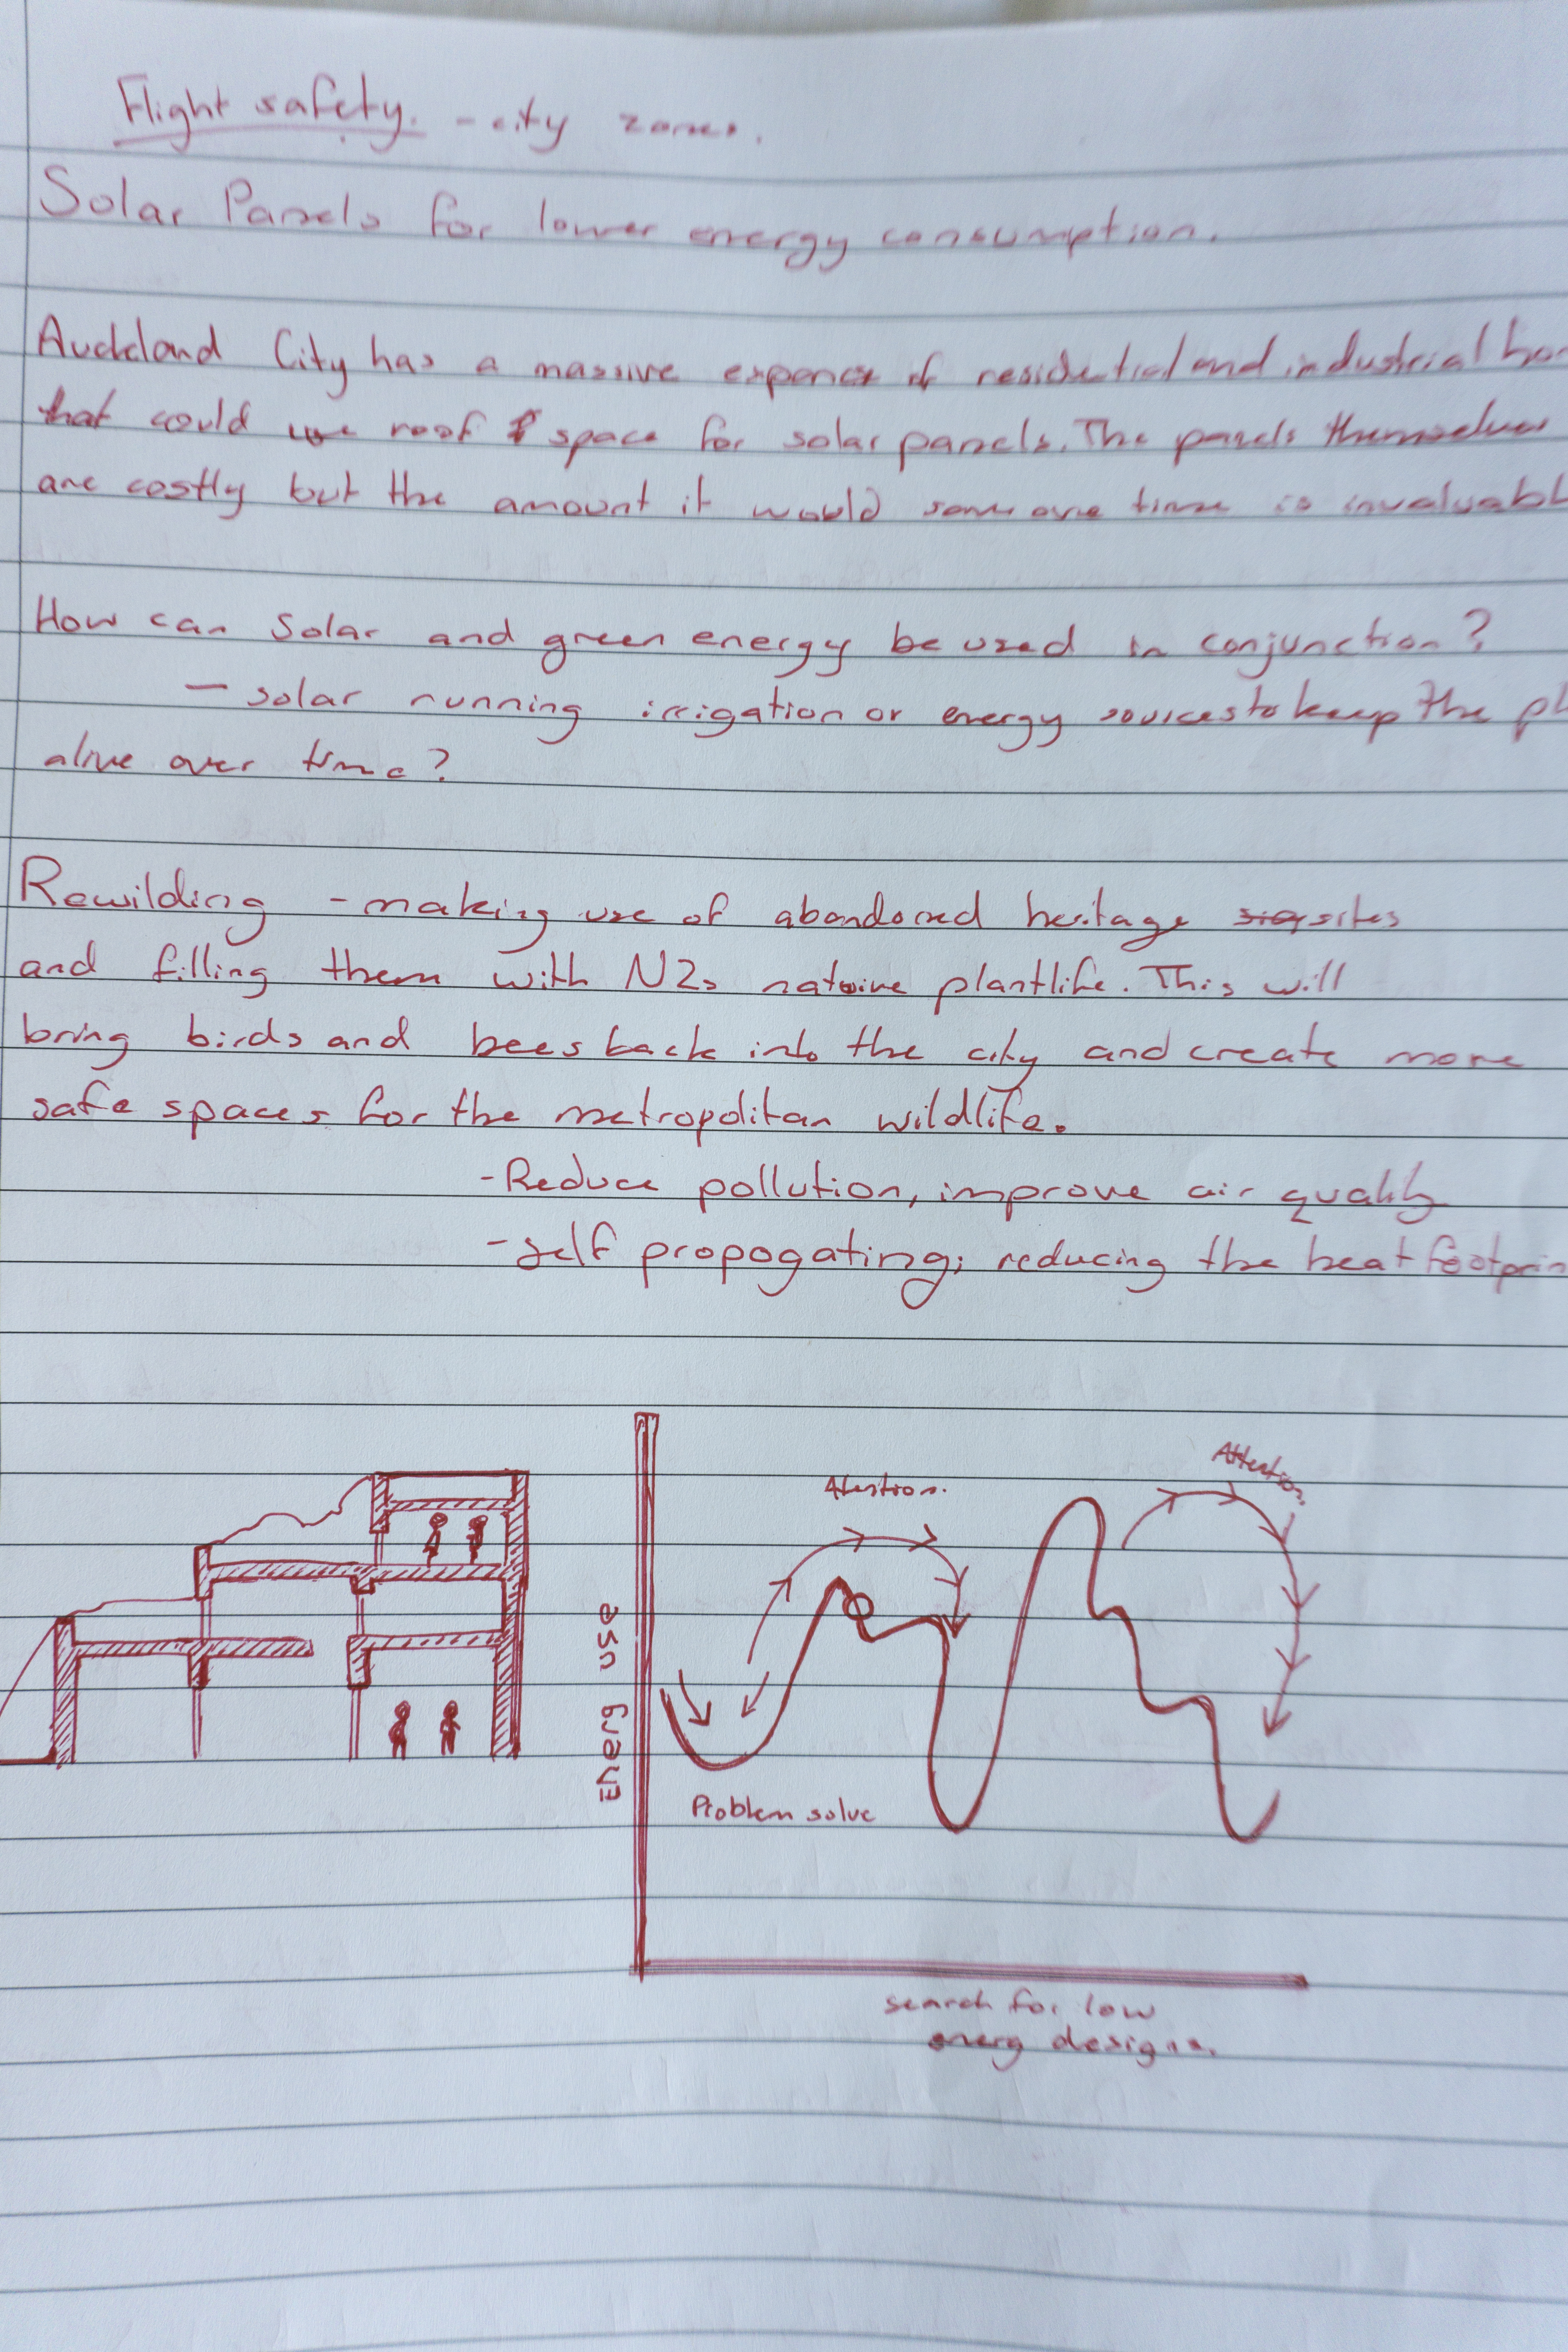 Flight safety. - city zones.
Solar Panels for lower energy consumption.
Auckland City has a massive expance of residential and industrial
that could use roof space for solar panels. The panels themselves
are costly but the amount it would someone time is
How can Solar and green energy be used in conjunction?
- solar running irrigation or energy sources to keep the
alive over time?
Rewilding - making use of abandoned heritage sites
and filling them with NZs native plantlife. This will
bring birds and bees back into the city and create more
safe spaces for the metropolitan wildlife.
- Reduce pollution, improve air quality
- self propogating; reducing the heat
Attention.
Attention.
Energy use
Problem solve
search for low
energ designs.